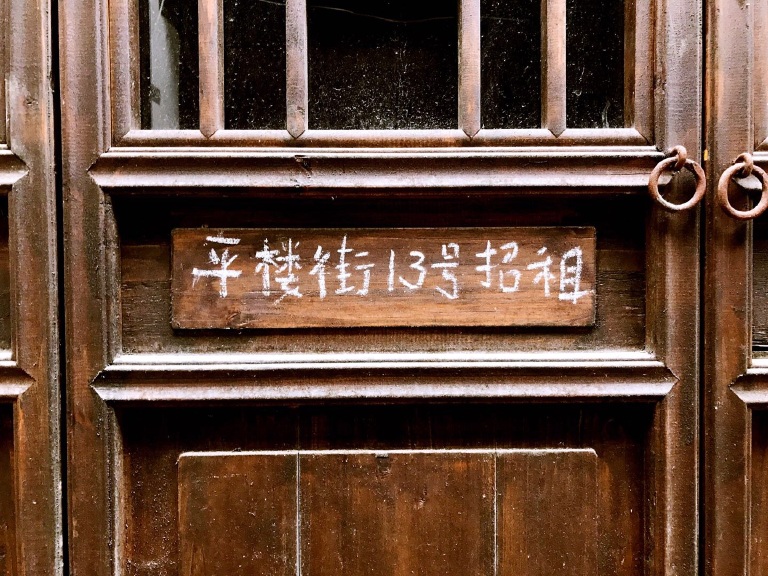 平楼街13号招租